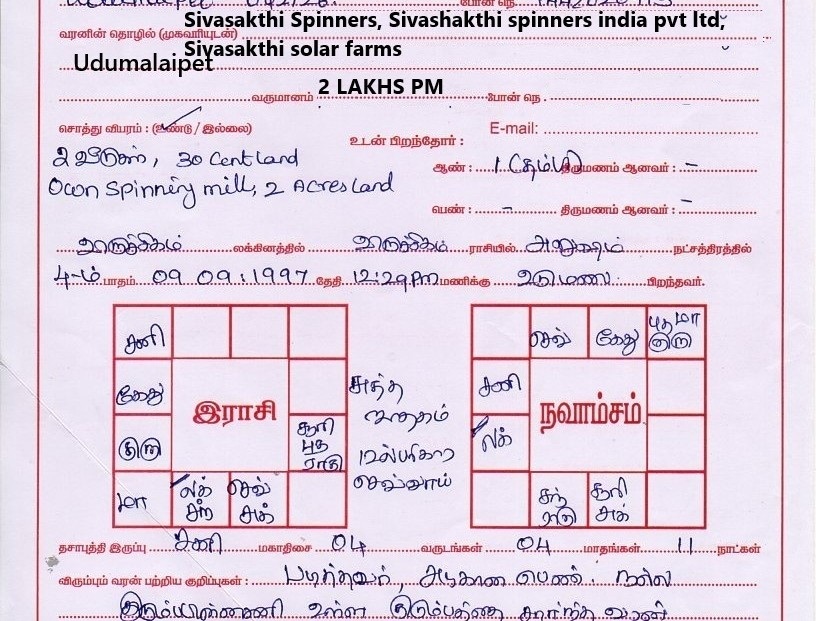 Sivasakthi Spinners, Sivashakthi spinners india pvt ltd,
வரனின் தொழில் (முகவரியுடன்)
Sivasakthi solar farms
Udumalaipet
வருமானம் 2 LAKHS PM போன் நெ.
சொத்து விபரம் : (உண்டு / இல்லை)
உடன் பிறந்தோர் : E-mail:
2 வீடுகள், 30 Cent Land
ஆண் : 1 (தம்பி) திருமணம் ஆனவர் : -
Own Spinnery mill, 2 Acres Land
பெண் : - திருமணம் ஆனவர் : -
விருச்சிகம் லக்கினத்தில் விருச்சிகம் ராசியில் அனுஷம் நட்சத்திரத்தில்
4-ம் பாதம் 09 09:1997 தேதி 12:29 Pm மணிக்கு உடுமலை பிறந்தவர்.
சனி
கேது
குரு
மா
லக்
சந்
செவ்
சுக்
சூரி
புத
ராகு
இராசி
சுத்த
ஜாதகம்
பரிகார
செவ்வாய்
செவ்
கேது
புத மா
குரு
சனி
லக்
சந்
ராகு
சூரி
சுக்
நவாம்சம்
தசாபுத்தி இருப்பு சனி மகாதிசை 04 வருடங்கள் 04 மாதங்கள் 11 நாட்கள்
விரும்பும் வரன் பற்றிய குறிப்புகள் : படித்தவர், அழகான பெண். நல்ல
உள்ள குடும்பத்தை சார்ந்த வரன்